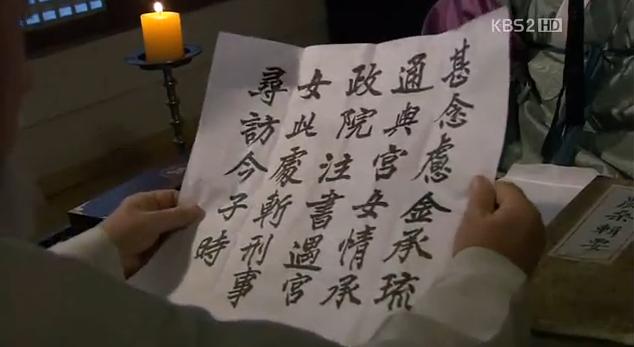 KBS2 HD
甚念慮金承琉
通與宮女情承
政院注書遇宮
女此處斬刑事
尋訪今子時